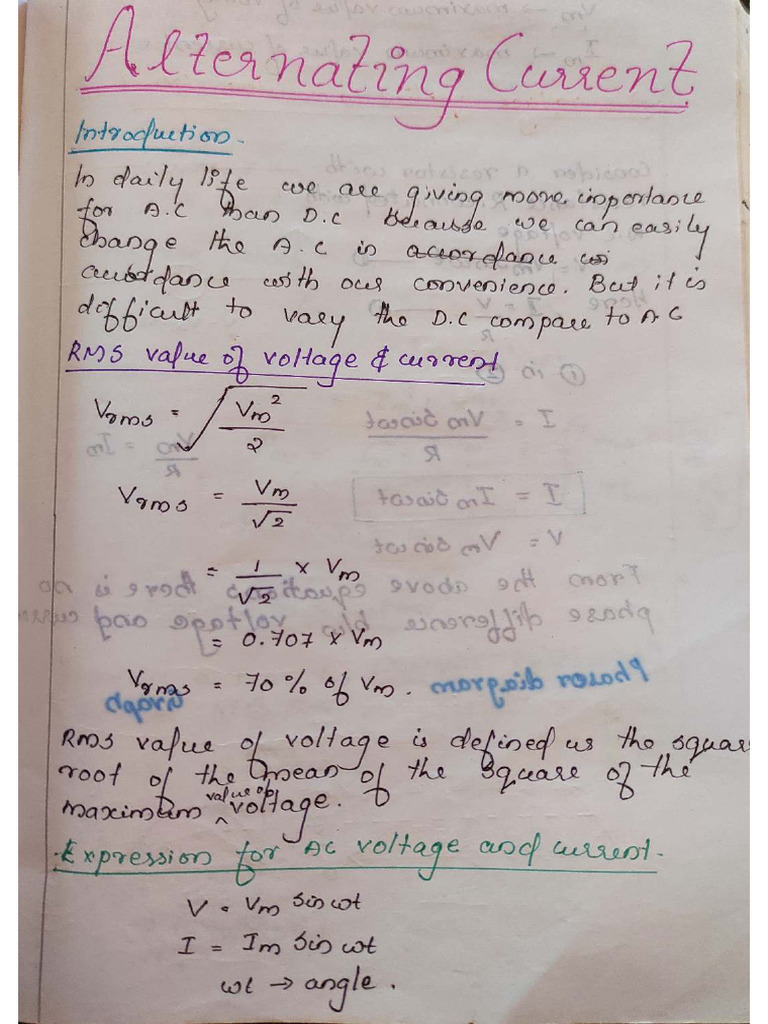 Alternating Current
Introduction.
In daily life we are giving more importance
for A.C than D.C because we can easily
change the A.C in accordance wi
accordance with our convenience. But it is
difficult to vary the D.C compare to AC
RMS value of voltage & current
Vrms = √(Vm²/2)
Vrms = Vm/√2
= 1/√2 × Vm
= 0.707 × Vm
Vrms = 70% of Vm.
RMS value of voltage is defined as the squar
root of the mean of the square of the
maximum value of voltage.
Expression for AC voltage and current.
V = Vm Sin ωt
I = Im Sin ωt
ωt → angle.